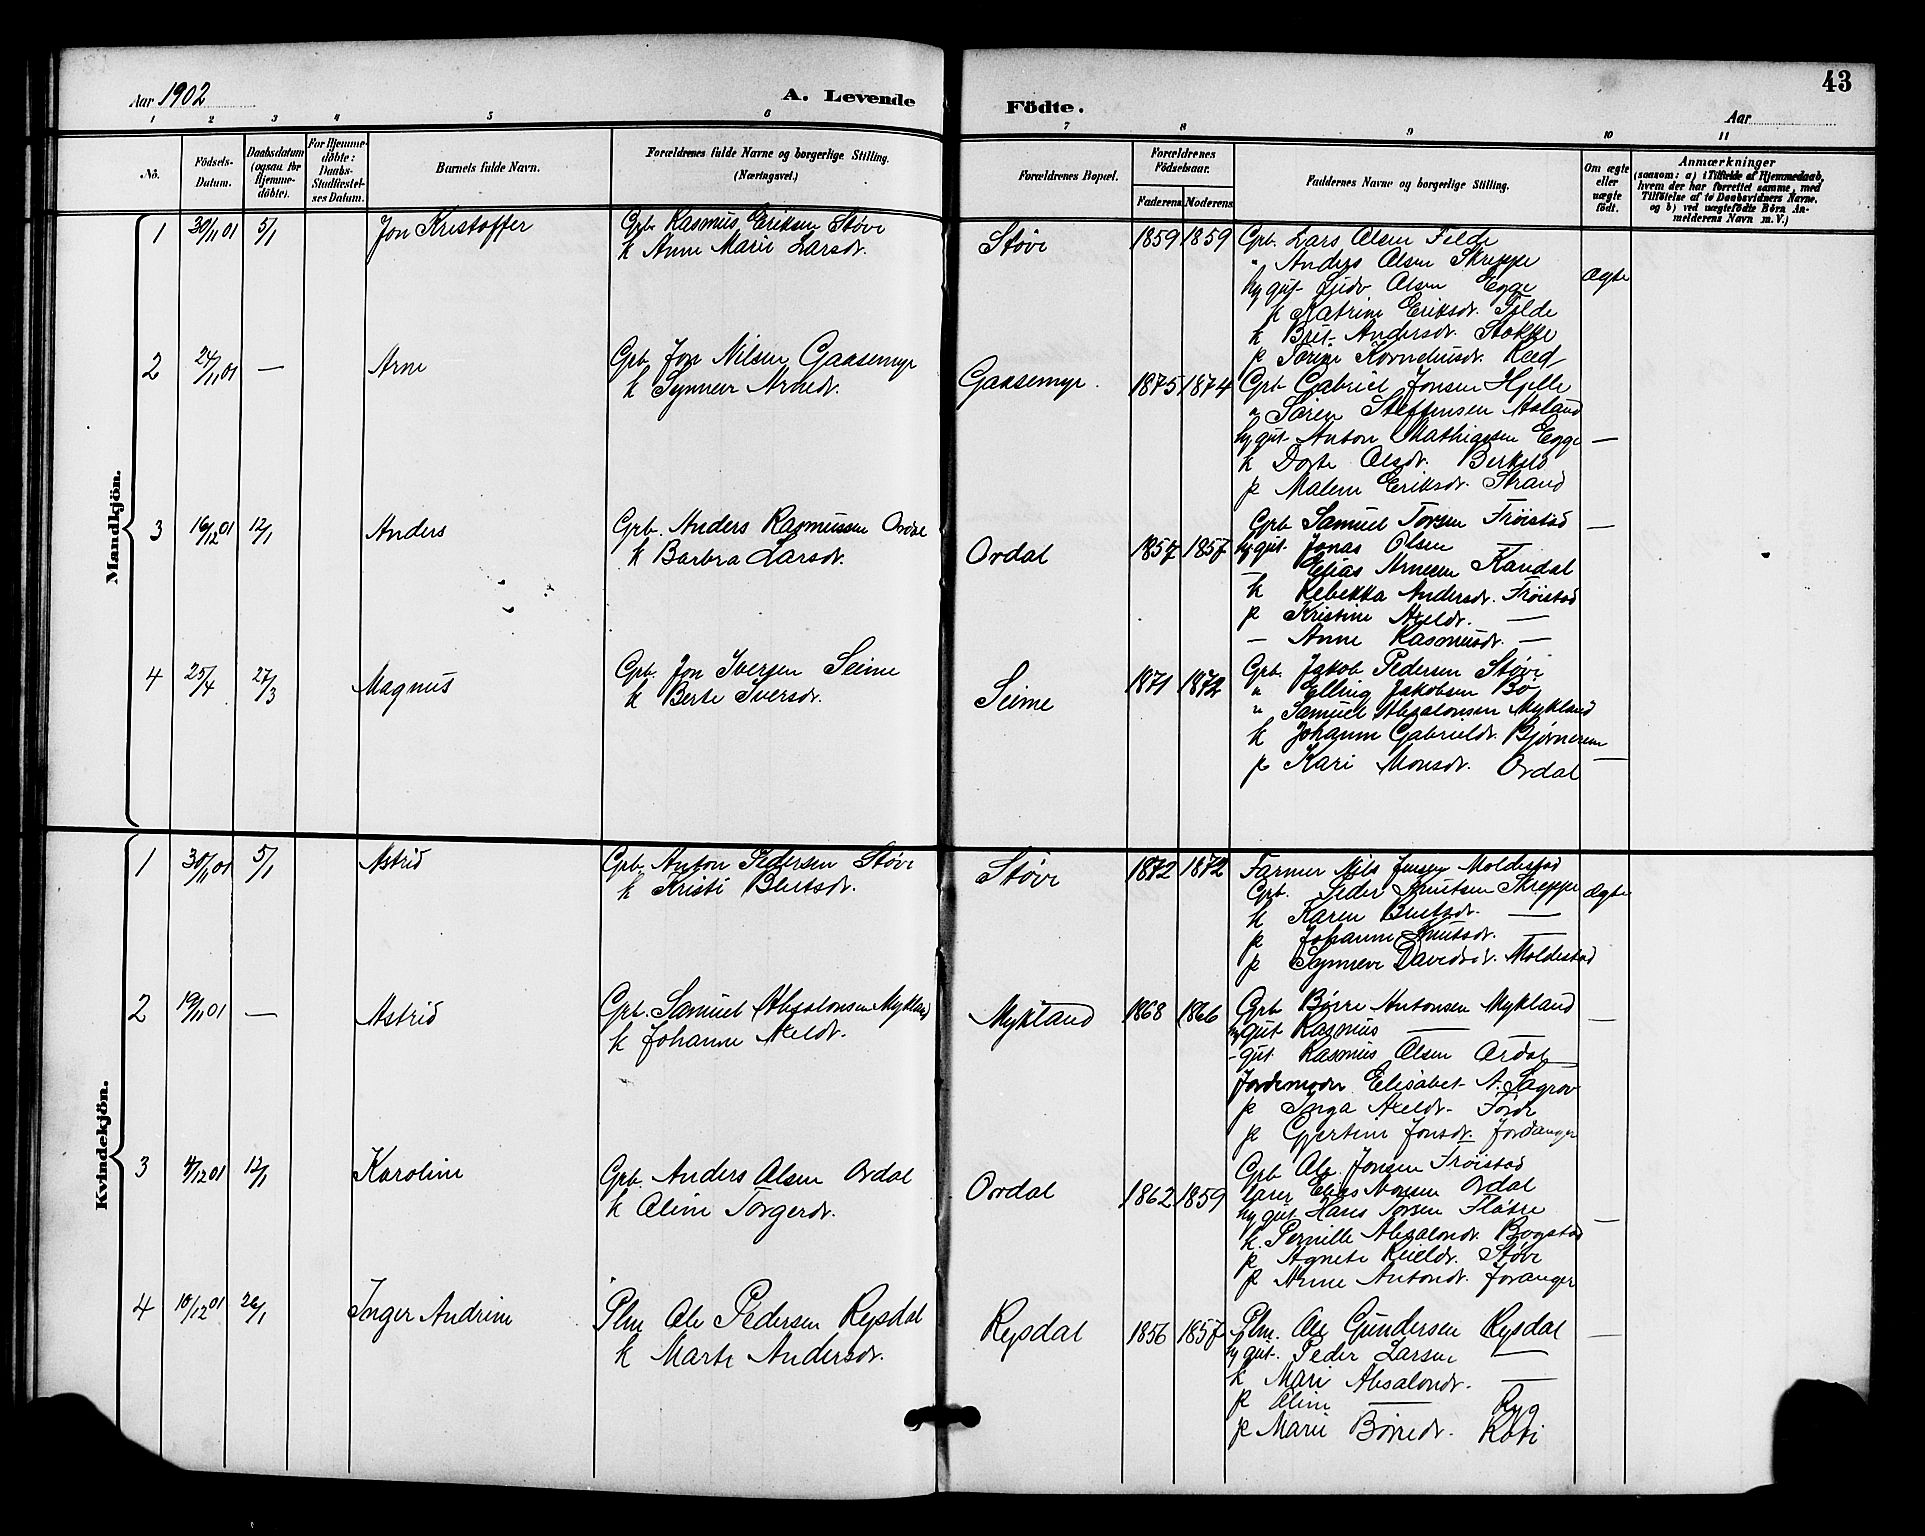 43
Aar 1902
A. Levende
Födte.
Aar
1 2 3 4 5 6 7 8 9 10 11
No.
Födsels-Datum.
Daabsdatum (ogsaa for Hjemmedöbte).
For Hjemmedöbte: Daabs-Stadfæstelses Datum.
Barnets fulde Navn.
Forældrenes fulde Navne og borgerlige Stilling. (Næringsvei.)
Forældrenes Bopæl.
Forældrenes Födselsaar.
Faderens Moderens
Faddernes Navne og borgerlige Stilling.
Om ægte eller uægte födt.
Anmærkninger
(saasom: a) i Tilfælde af Hjemmedaab, hvem der har forrettet samme, med Tilföielse af to Daabsvidners Navne. og b) ved uægtefödte Börn Anmelderens Navn m. V.)
Mandkjön.
1 30/11 01 5/1 Jon Kristoffer
Grb. Rasmus Eriksen Støve
k Anne Marie Larsdr.
Støve 1859 1859
Grb. Lars Olsen Felde
" Anders Olsen Skreppe
Ægte
hy gut Olsen Egge
p Katrine Eriksdr. Felde
k Brit Andersdr. Stokke
p Korneliusdr. Red
2 24/11 01 — Arne
Grb. Jon Nilsen Gaasemyr
k Synneve Arnedr.
Gaasemyr. 1875 1874
Grb Gabriel Jonsen Hjelle
" Søren Steffensen Aaland
hy gut Anton Mathiasen Egge —
k Dorte Olsdr. Berkelo
p Malene Eriksdr. Strand
3 16/12 01 12/1 Anders
Grb. Anders Rasmussen Ordal
k Barbra Larsdr.
Ordal 1857 1857
Grb Samuel Torsen Frøistad —
hy gut. Jonas Olsen —
— Elias Arnesen Kandal
k Rebekka Andersdr. Frøistad
p Kristine Axeldr. —
— Anne Rasmusdr. —
4 25/4 27/3 Magnus
Grb. Jon Iversen Seime
k Berte Iversdr.
Seime 1871 1872
Grb. Jakob Pedersen Støve
" Elling Jakobsen Bø
" Samuel Absalonsen Mykland
k Johanne Gabrieldr. Bjørnereim
p Kari Monsdr. Ordal —
Kvindekjön.
1 30/11 01 5/1 Astrid
Grb. Anton Pedersen Støve
k Kristi Bentsdr.
Støve 1872 1872
Farmer Nils Jensen Moldestad
Grb. Peder Knutsen Skreppe Ægte
k Karen Bentsdr. —
p Johanne Knutsdr. —
p Synneve Davidsdr. Moldestad
2 19/11 01 — Astrid
Grb. Samuel Absalonsen Mykland
k Johanne Axeldr.
Mykland 1868 1866
Grb Børre Antonsen Mykland —
hy gut Rasmus —
- gut. Rasmus Olsen Ordal
Jordemoder Elisabet A. Sagrov
p Inga Axeldr. Førde
p Gjertine Jonsdr. Jordanger
3 4/12 01 12/1 Karoline
Grb. Anders Olsen Ordal
k Oline Torgerdr.
Ordal 1862 1859
Grb Ole Jonsen Frøistad
lærer Elias Monsen Ordal
hy gut Hans Torsen Fløtre —
k. Pernille Absalondr. Bogstad
p Agnete Støve
p Anne Antondr. Joranger
4 10/12 01 26/1 Inger Andrine
Plm Ole Pedersen Rysdal
k Marte Andersdr.
Rysdal 1856 1857
Plm. Ole Gundersen Rysdal —
hy gut. Peder Larsen —
k Mari Absalondr. —
p Oline — Ryg
p Marie Børredr. Kobi